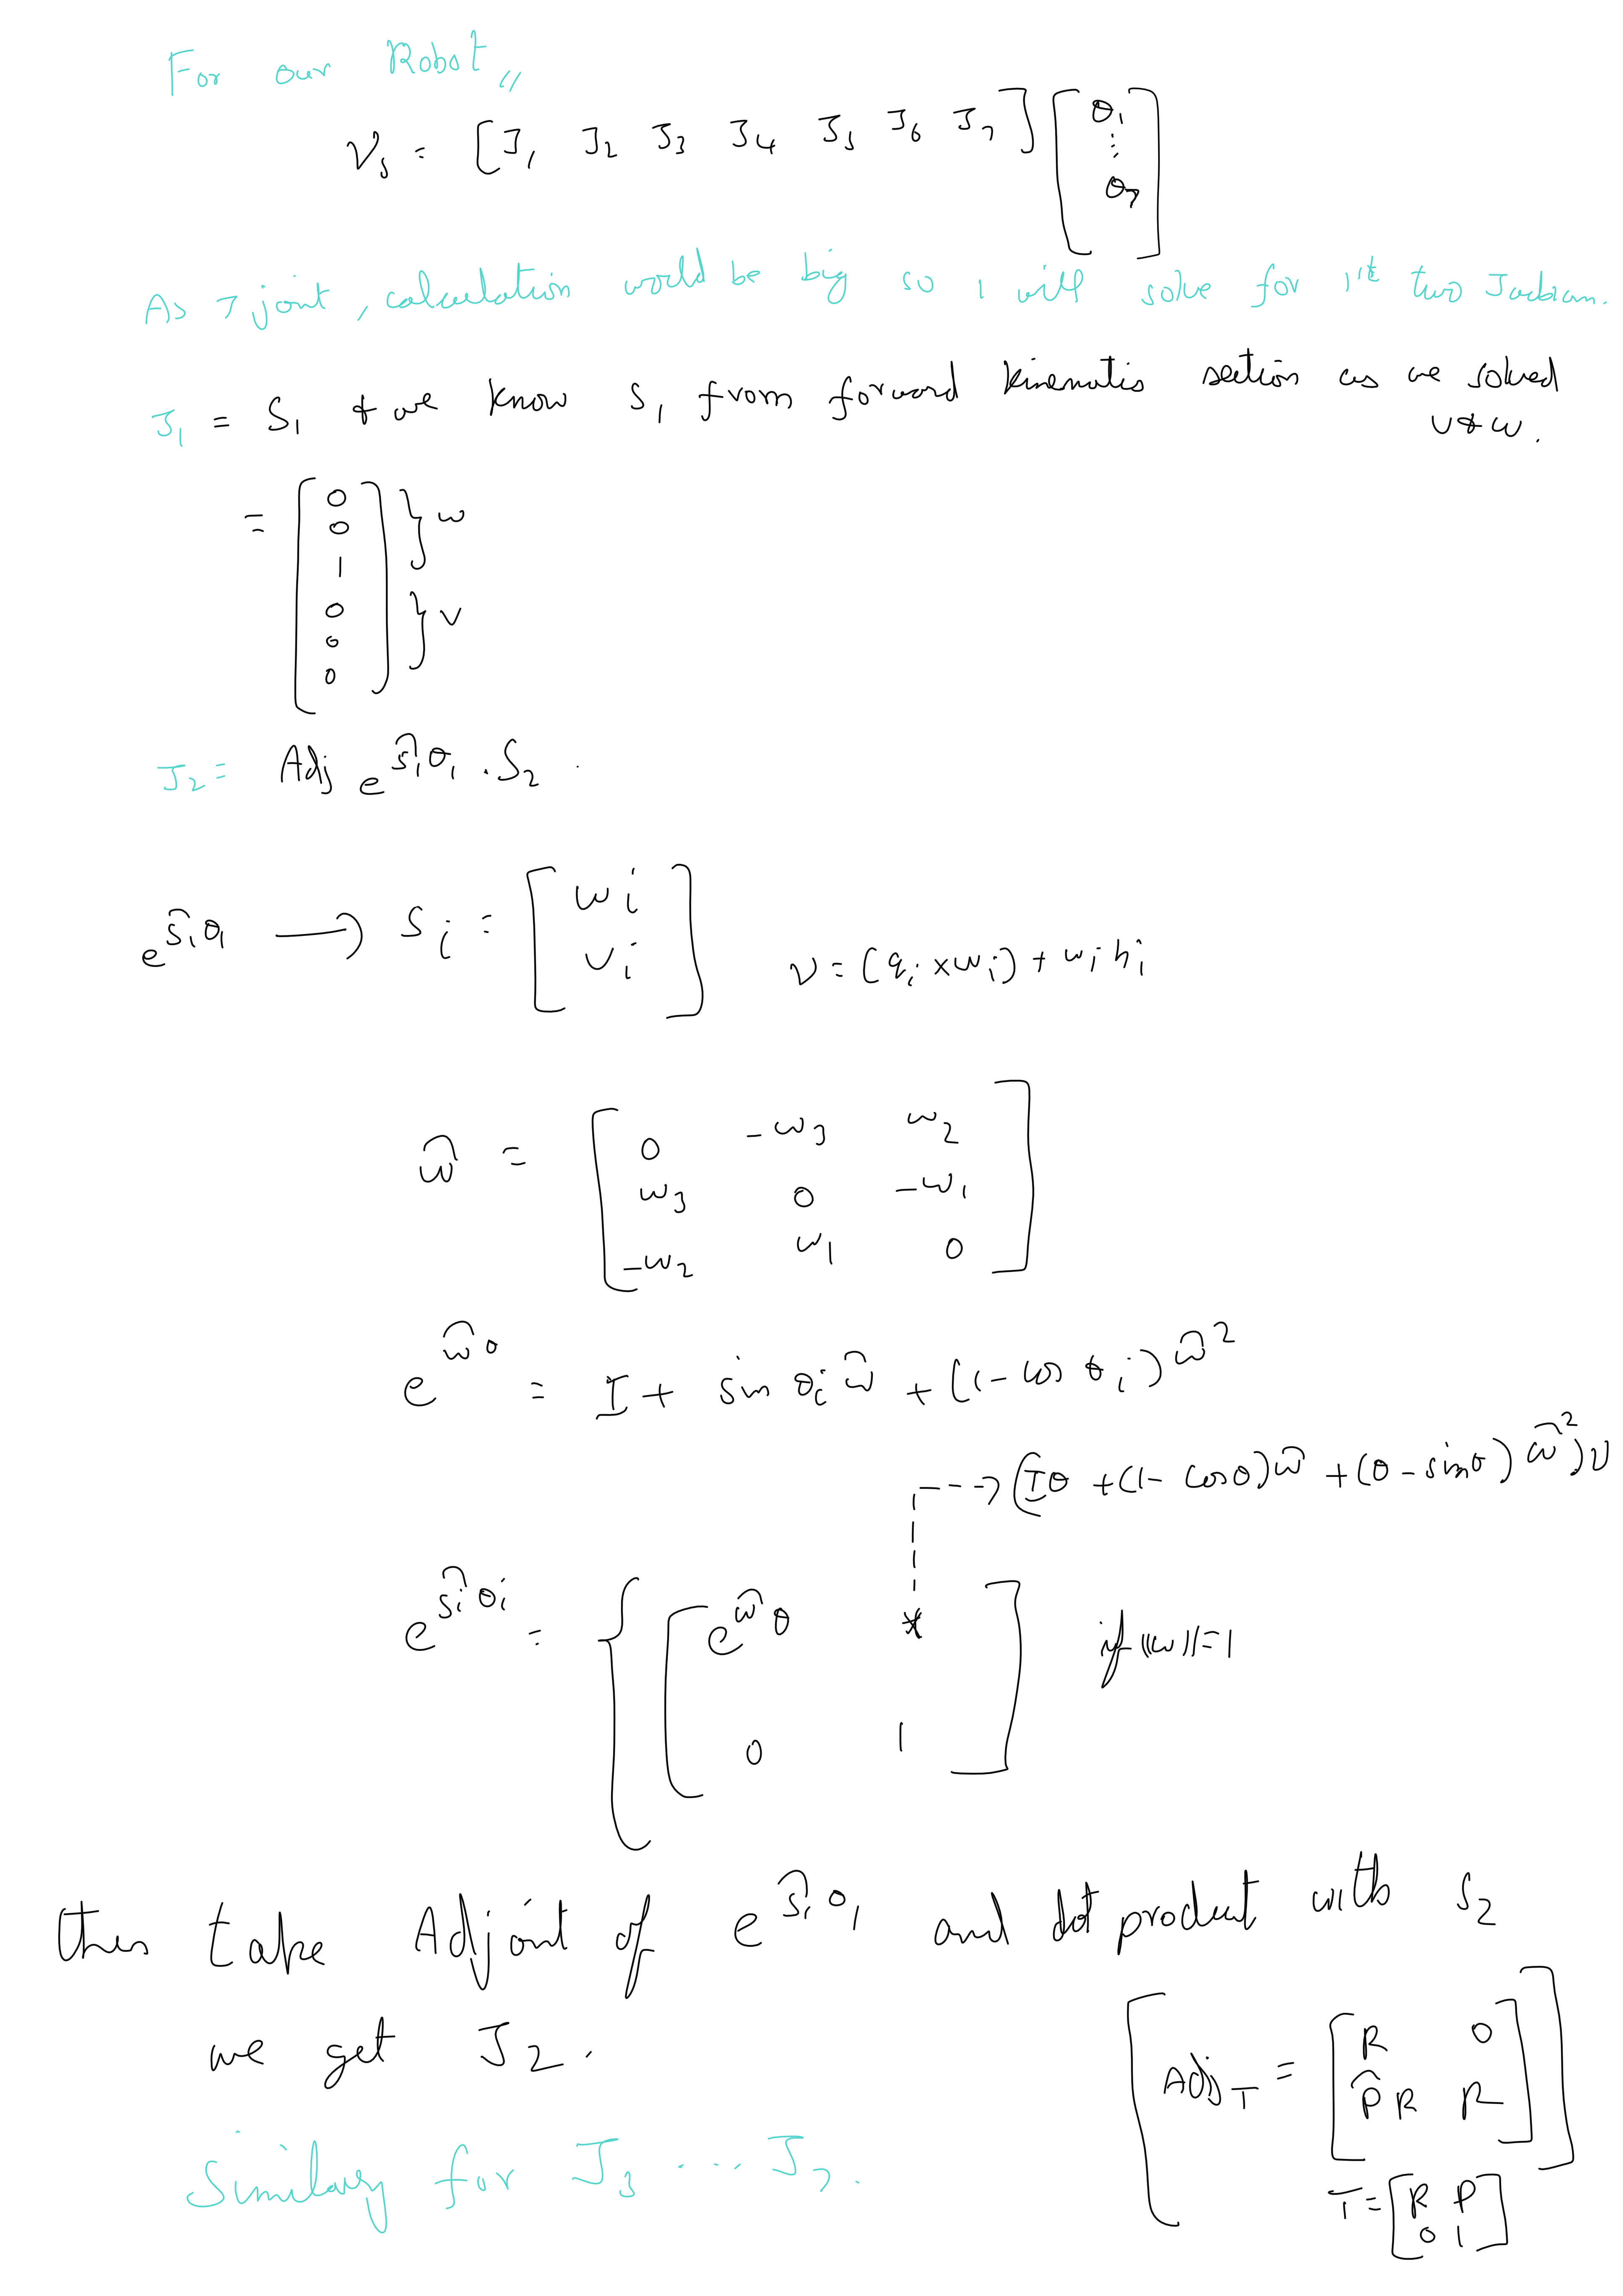 For our Robot,,
𝒱s = [J₁ J₂ J₃ J₄ J₅ J₆ J₇] [θ₁ ⋮ θ₇]
As 7 joint, calculation would be big so I will solve for 1st two Jacobian.
J₁ = S₁ & we know S₁ from forward kinematis section as we solved
v & w.
= [0 0 1 0 0 0] } w } v
J₂ = Adj e^ŝ₁θ₁ . S₂ .
e^ŝ₁θ₁ → Sᵢ = [wᵢ vᵢ] v = (qᵢ × wᵢ) + wᵢ hᵢ
ŵ = [0 -w₃ w₂
w₃ 0 -w₁
-w₂ w₁ 0]
e^ŵθ = I + sin θᵢ ŵ + (1 - cos θᵢ) ŵ²
--→ (Iθ + (1 - cosθ) ŵ + (θ - sinθ) ŵ²) v
e^ŝᵢθᵢ = { [e^ŵθ * if ||w|| = 1
0 1]
thus take Adjoint of e^ŝ₁θ₁ and dot product with S₂
we get J₂.
[Adj_T = [R 0
p̂R R]]
Similary for J₃ .... J₇.
T = [R P
0 1]